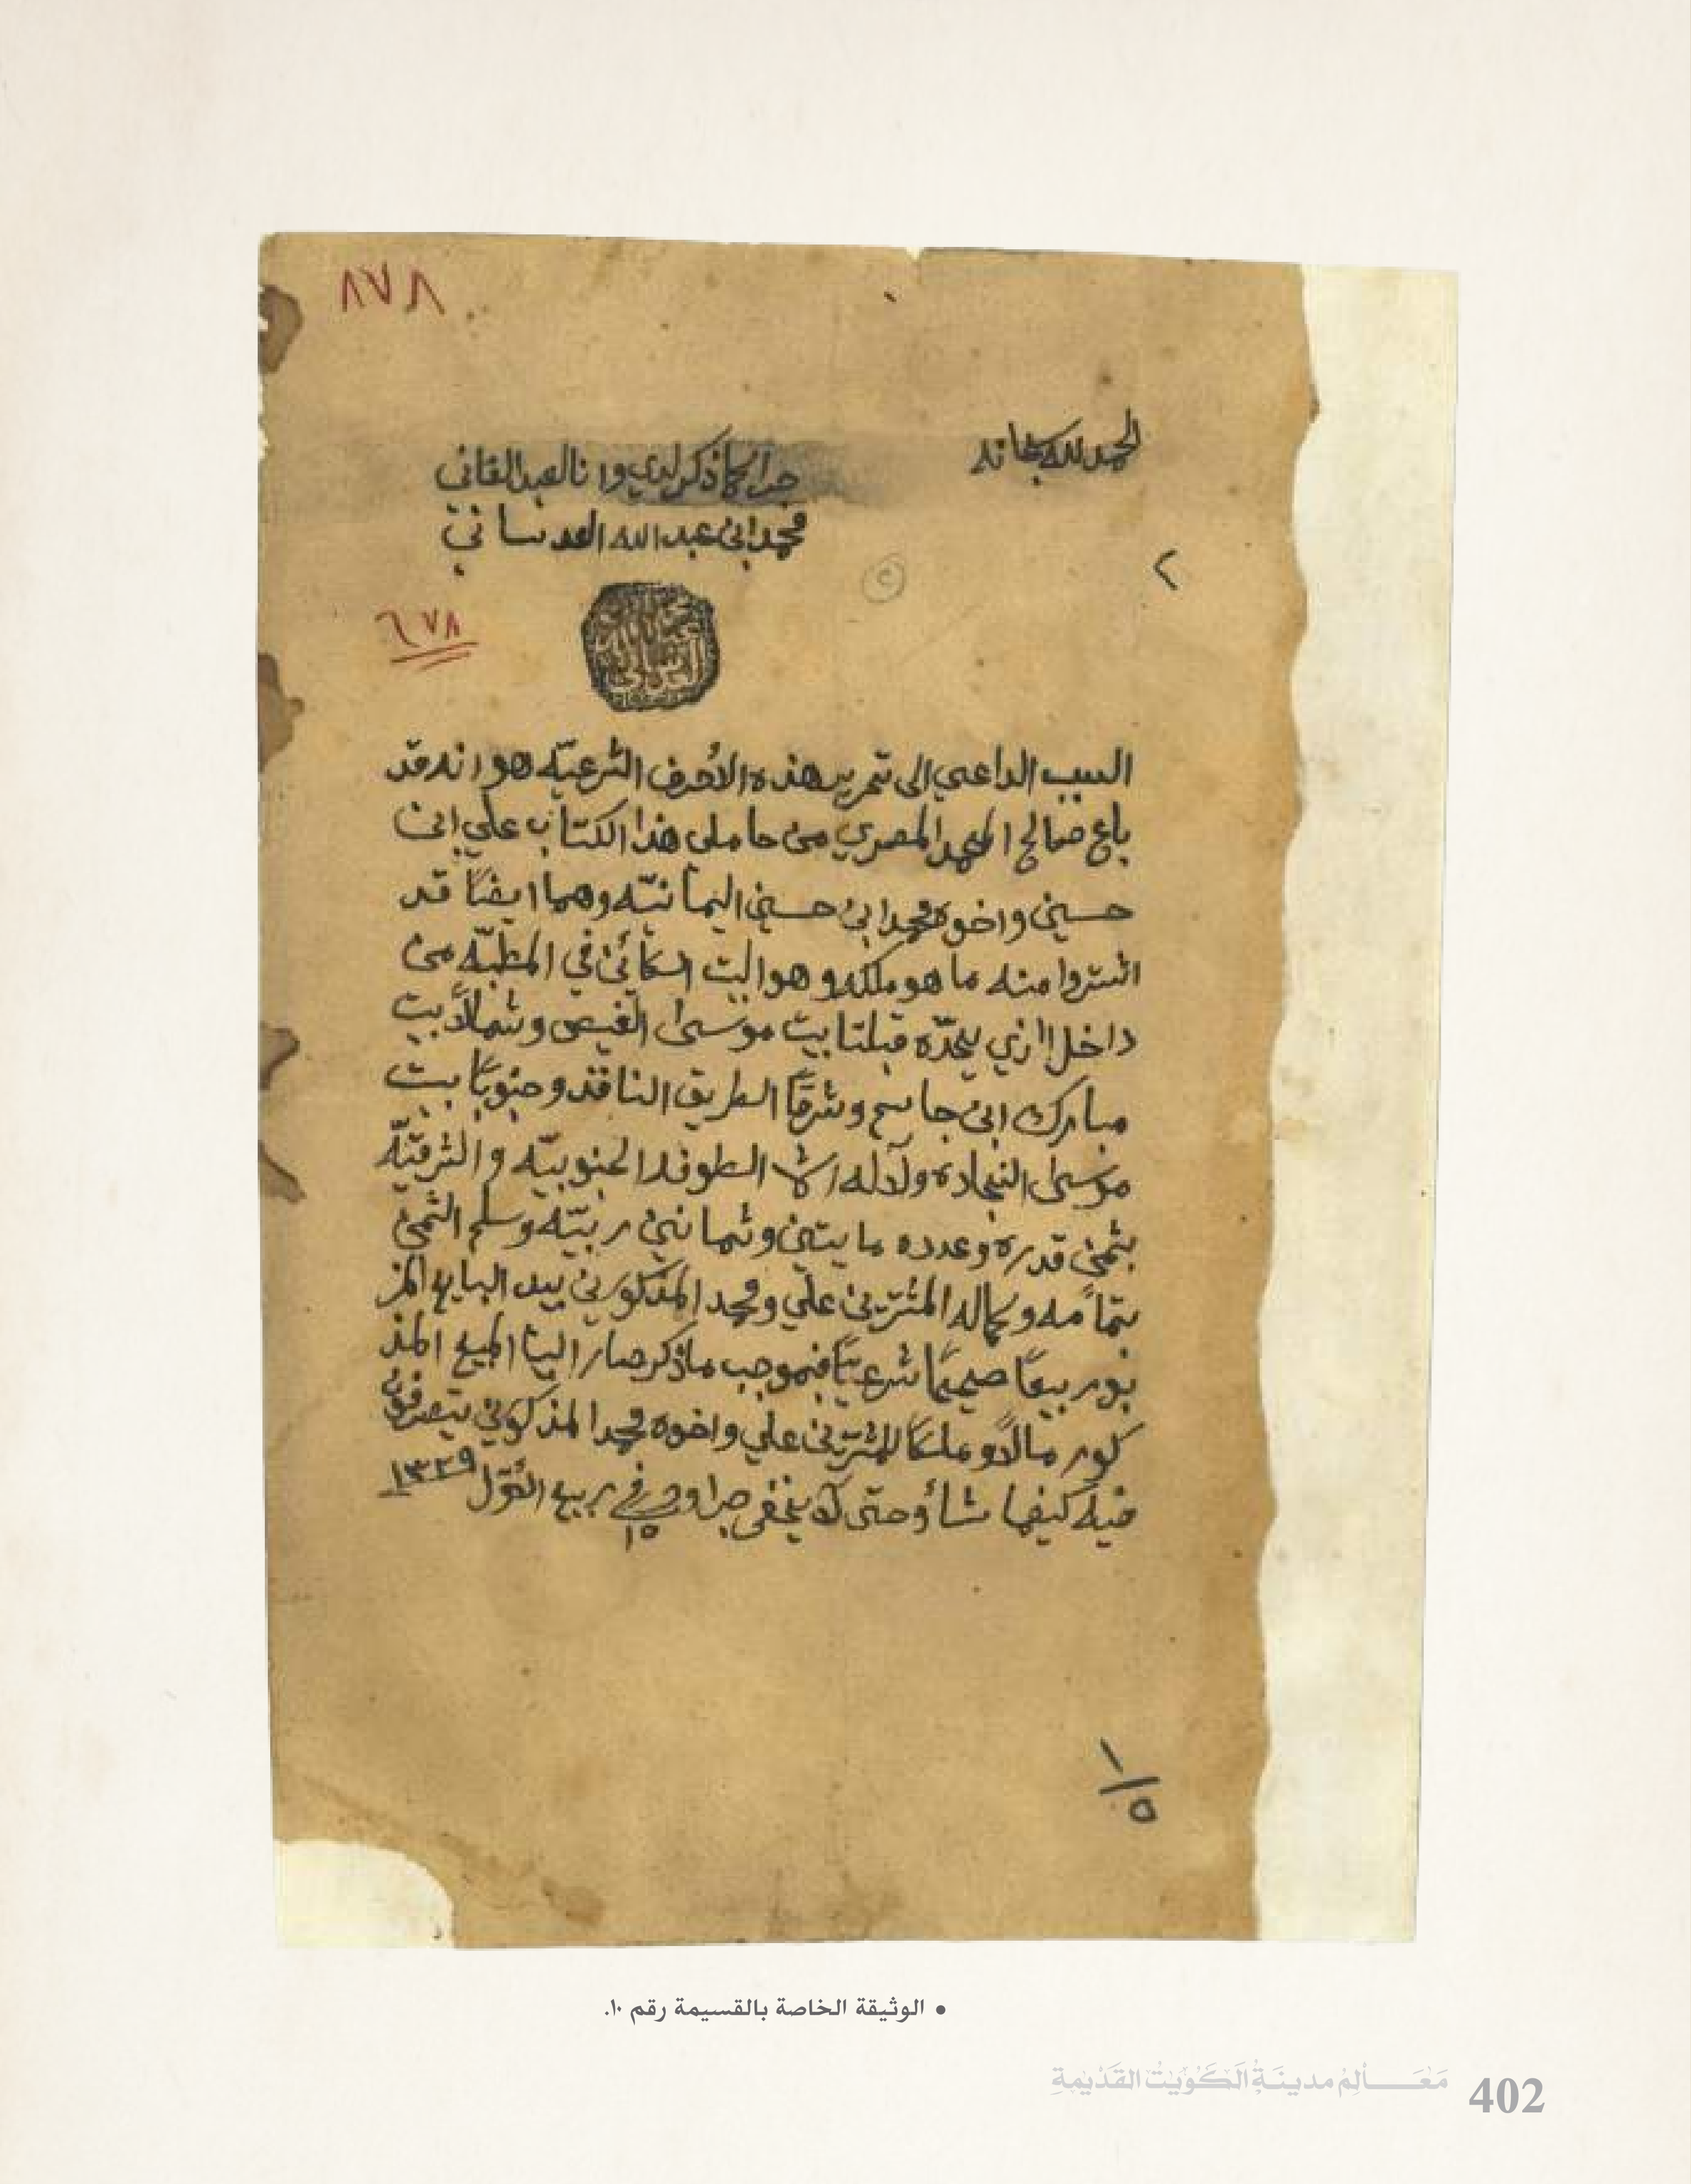 ٨٧٨
الحمد لله سبحانه
جرا كما ذكر لدي وانا العبد الفاني
محمد ابن عبد الله العدساني
٢
٦٧٨
السبب الداعي الى تحرير هذه الأحرف الشرعيّه هو انه قد
باع صالح المصري من حاملى هذا الكتاب علي ابن
حسين واخوه محمد ابن حسين اليمانيّه وهما ايضًا قد
اشتروا منه ما هو ملكه وهو البيت الكائن في المطبّه من
داخل يحدّه قبلتا بيت موسى الغيص وشمالاً بيت
مبارك ابن جاسم وشرقًا الطريق النافذ وجنوبًا بيت
موسى النجاده ولآله الا الطوفه الجنوبيّه والشرقيّه
بثمن قدره وعدده مايتين وثمانين ربيّه وسلم الثمن
بتمامه وكماله المشترين علي ومحمد المذكورين بيد البايع المز
بور بيعًا صحيحًا شرعيًّا فبموجب ما ذكر صار البيت المبيع المذ
كور مالاً وملكًا للمشترين علي واخوه محمد المذكورين يتصرفون
فيه كيفما شاؤ وحتى لا يخفى جرا وحرر في ١٥ ربيع الأوّل ١٣٢٩
١/٥
• الوثيقة الخاصة بالقسيمة رقم ١٠.
مَعَالِمُ مدينَةِ الكُوَيْتِ القَدِيمَةِ 402